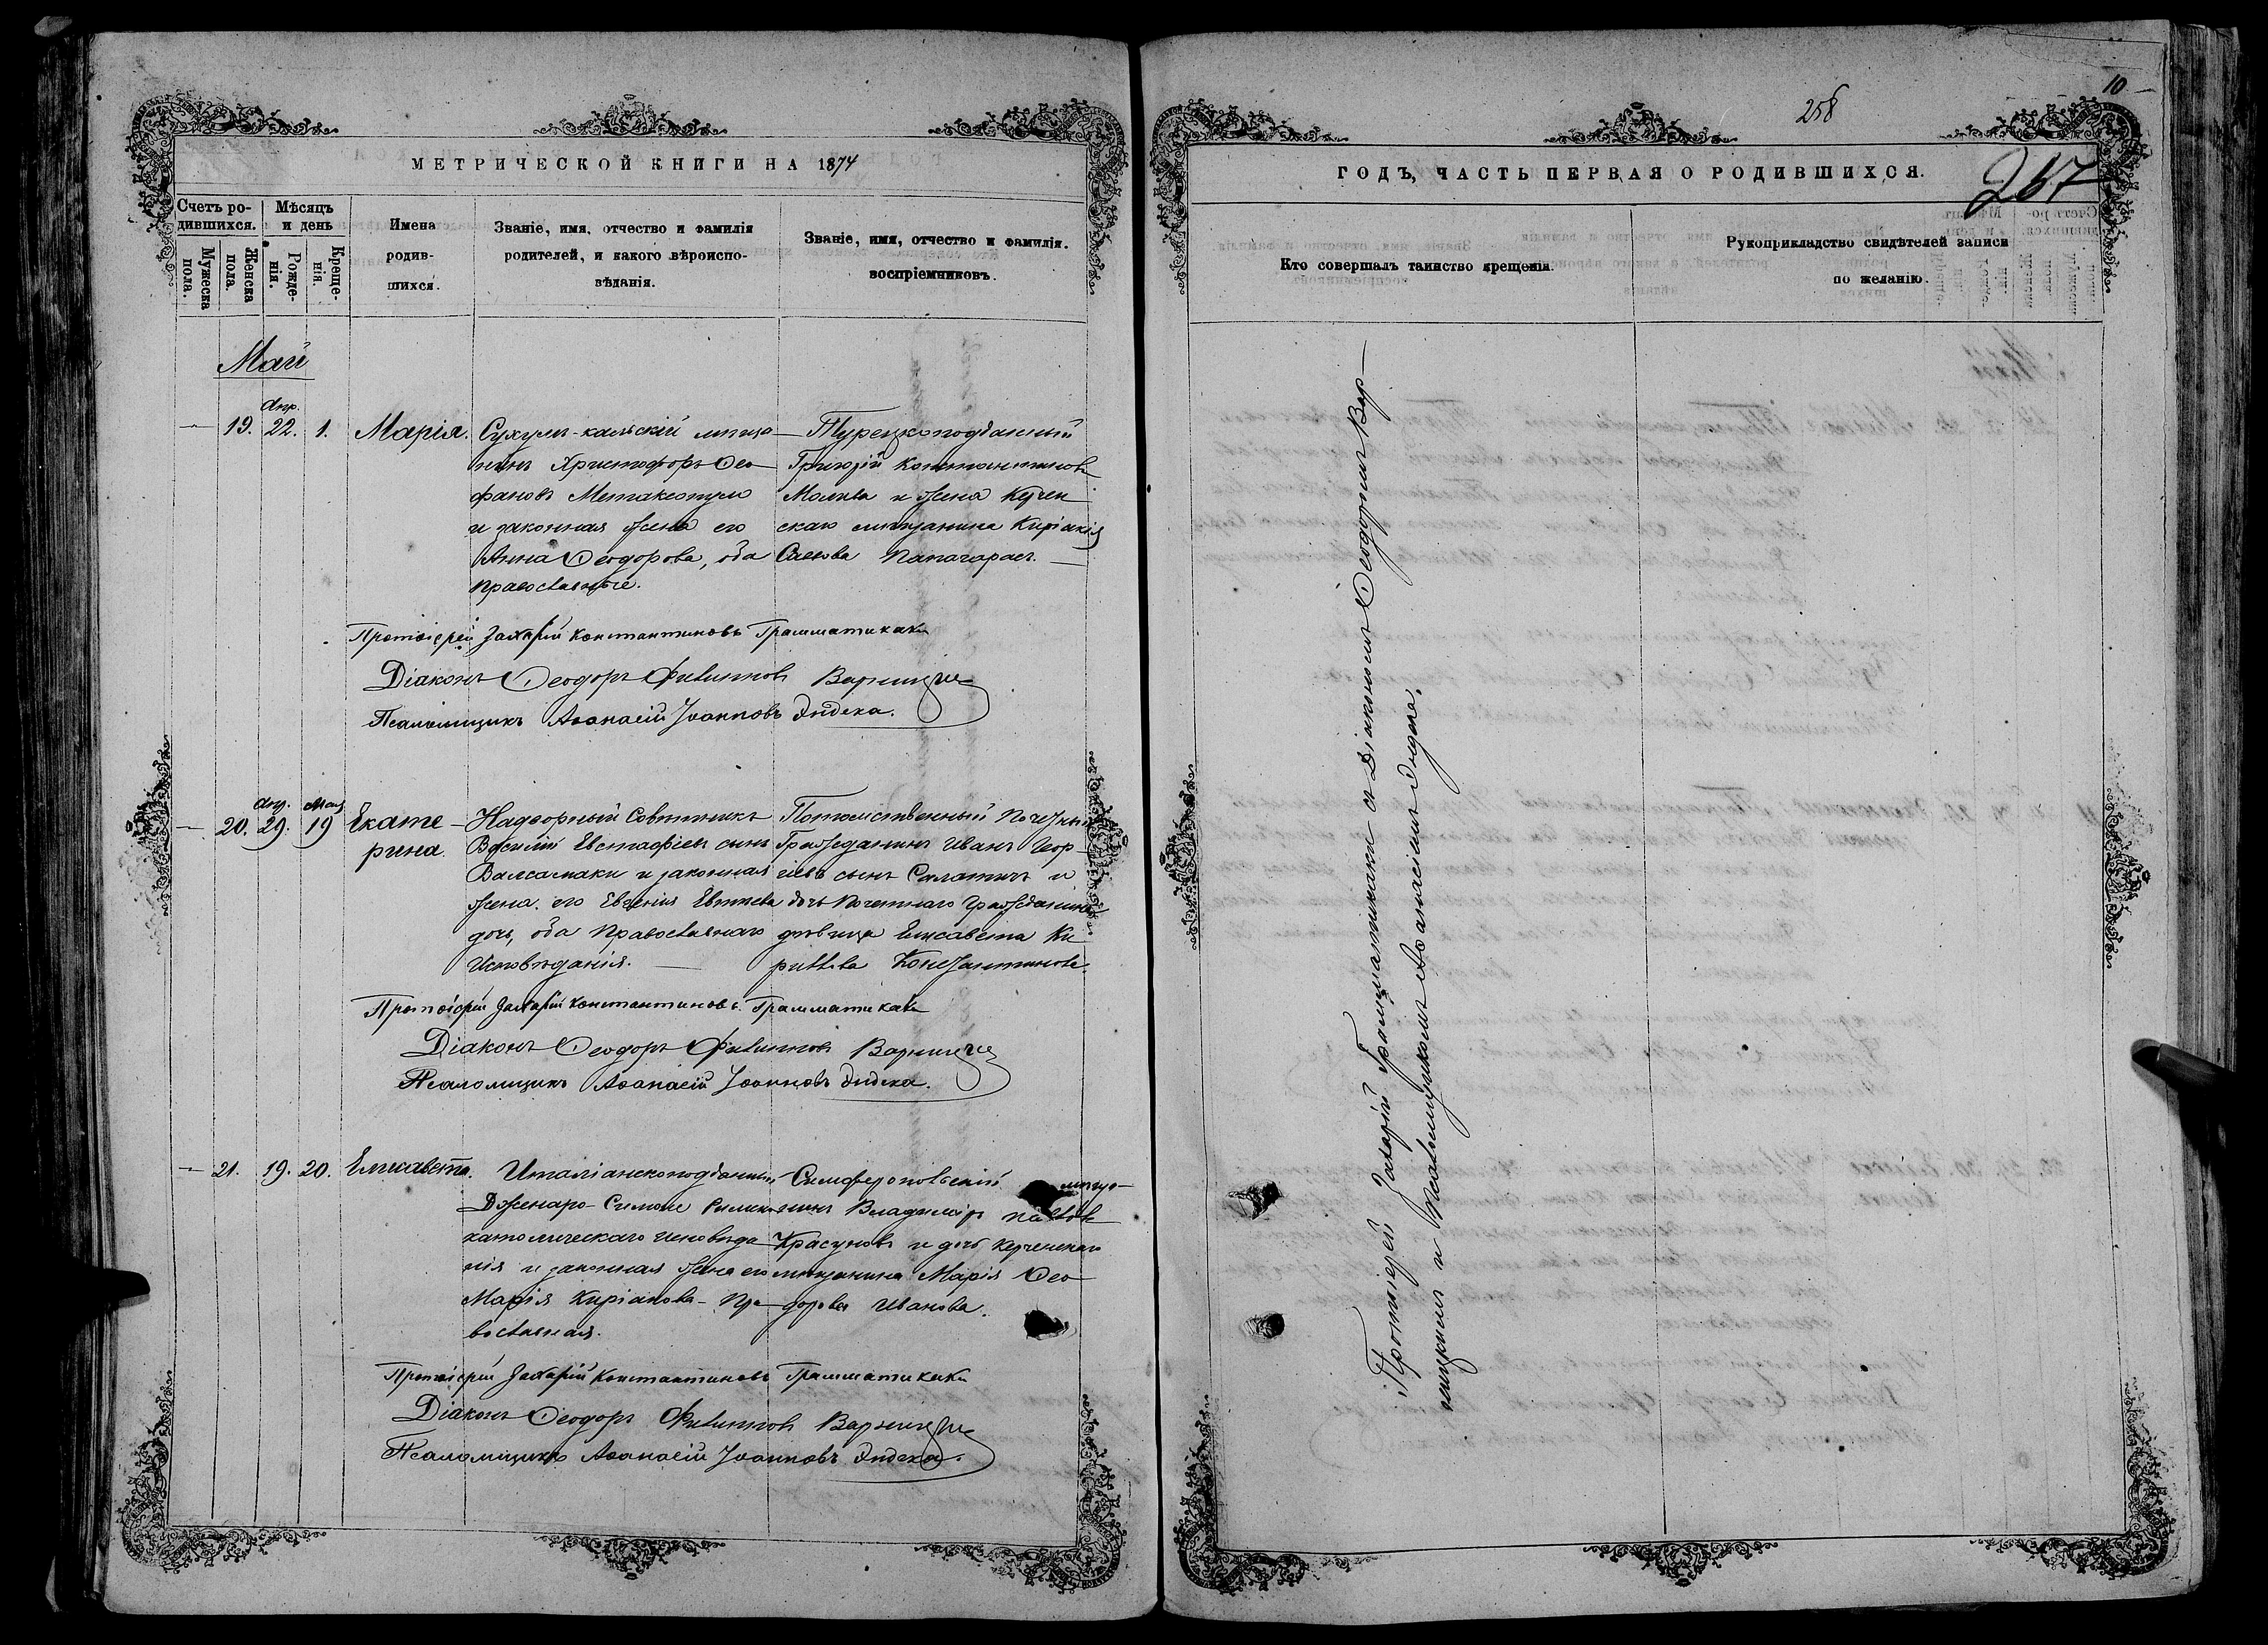 МЕТРИЧЕСКОЙ КНИГИ НА 1874
Счетъ ро-
дившихся.
Мѣсяцъ
и день
Мужеска
пола.
Женска
пола.
Рожде-
нія.
Креще-
нія.
Имена
родив-
шихся.
Званіе, имя, отчество и фамилія
родителей, и какого вѣроиспо-
вѣданія.
Званіе, имя, отчество и фамилія.
воспріемниковъ.
Май
Апр.
19. 22. 1. Марія.
Сухумъ-кальскій мѣща-
нинъ Христофоръ Ѳео-
фановъ Метаксопуло
и законная жена его
Анна Ѳеодорова, оба
православные.
Турецкоподданный
Григорій Константиновъ
и жена Керчен
скаго мѣщанина Киріакія
Саввова
Протоіерей Захарій Константиновъ Грамматикаки
Діаконъ Ѳеодоръ Филипповъ
Псаломщикъ Аѳанасій Іоанновъ Эндека.
Апр. Мая
20. 29. 19 Екате-
рина.
Надворный Совѣтникъ
Василій Евстафіевъ сынъ
Валсамаки и законная
жена его Евгенія
дочь, оба Православнаго
Исповѣданія.
Потомственный Почетный
Гражданинъ Иванъ Геор-
гіевъ сынъ и
дочь Почетнаго Гражданина
дѣвица Елисавета Ки-
риллова
Протоіерей Захарій Константиновъ Грамматикаки
Діаконъ Ѳеодоръ Филипповъ
Псаломщикъ Аѳанасій Іоанновъ Эндека.
21. 19. 20. Елисавета.
Италіанскоподданный
Дженаро-Симоне Римско
католическаго исповѣда-
нія и законная жена его
Марія Киріакова-Пра-
вославная.
Симферопольскій мѣща-
нинъ Владиміръ Павловъ
Красуновъ и дочь Керченскаго
мѣщанина Марія Ѳео-
дорова Иванова.
Протоіерей Захарій Константиновъ Грамматикаки
Діаконъ Ѳеодоръ Филипповъ
Псаломщикъ Аѳанасій Іоанновъ Эндека.
10
258
267
ГОДЪ, ЧАСТЬ ПЕРВАЯ О РОДИВШИХСЯ.
Кто совершалъ таинство крещенія.
Рукоприкладство свидѣтелей записи
по желанію.
Протоіерей Захарій Грамматикаки съ Діакономъ Ѳеодоромъ Вар-
и Псаломщикомъ Аѳанасіемъ Эндека.